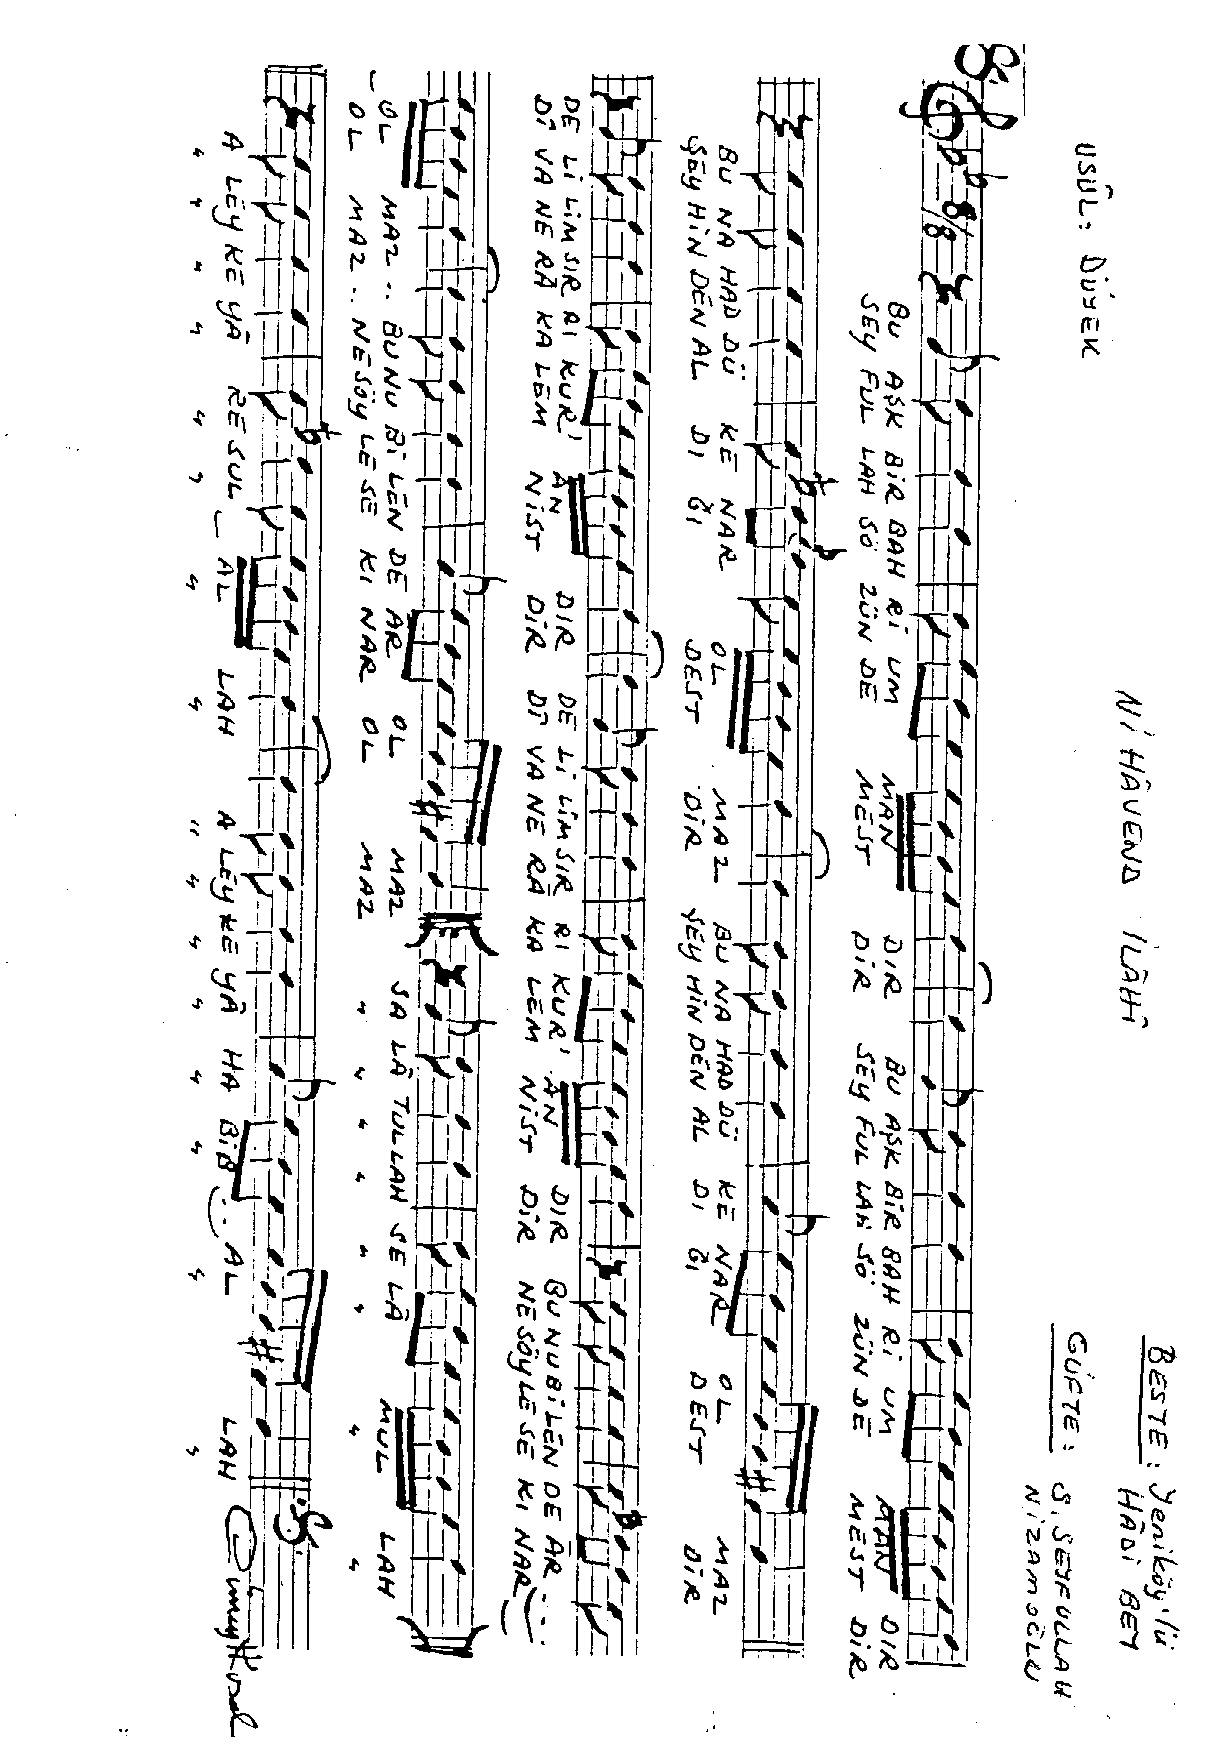 NİHÂVEND İLÂHİ
USÛL: DÜYEK
BESTE: Yeniköy'lü
HÂDİ BEY
GÜFTE: S. SEYFULLAH
NİZAMOĞLU
8/8
BU AŞK BİR BAH Rİ UM MAN DIR BU AŞK BİR BAH Rİ UM MAN DIR
SEY FUL LAH SÖ ZÜN DE MEST DİR SEY FUL LAH SÖ ZÜN DE MEST DİR
BU NA HAD DÜ KE NAR OL MAZ BU NA HAD DÜ KE NAR OL MAZ
ŞEY HİN DEN AL DI ĞI DEST DİR ŞEY HİN DEN AL DI ĞI DEST DİR
DE Lİ LİM SIR RI KUR' AN DIR DE Lİ LİM SIR RI KUR' AN DIR BU NU Bİ LEN DE AR . . .
DÎ VA NE RÂ KA LEM NİST DİR DÎ VA NE RÂ KA LEM NİST DİR NE SÖY LE SE KI NAR
OL MAZ . . BU NU Bİ LEN DE AR OL MAZ SA LÂ TUL LAH SE LÂ MUL LAH
OL MAZ . . NE SÖY LE SE KI NAR OL MAZ " " " " " " "
A LEY KE YÂ RE SUL AL LAH A LEY KE YÂ HA BİB . . AL LAH
" " " " " " " " " " " " " " " "